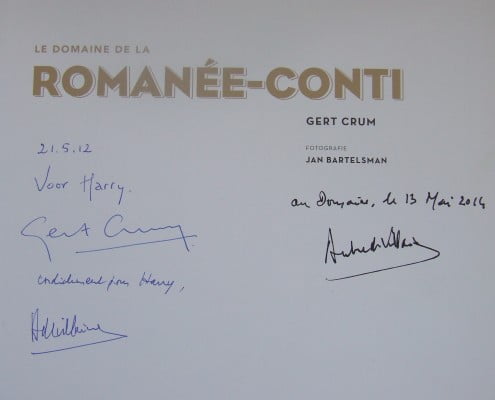 LE DOMAINE DE LA
ROMANÉE-CONTI
GERT CRUM
FOTOGRAFIE
JAN BARTELSMAN
21.5.12
Voor Harry.
Gert Crum
cordialement pour Harry,
au Domaine, le 13 Mai 2014